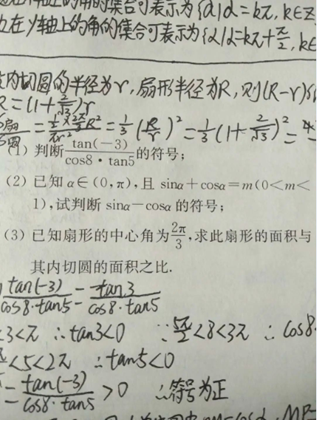 的角的集合可表示为{α|α=kπ,k∈Z
在y轴上的角的集合可表示为{α|α=kπ+π/2,k∈
内切圆的半径为r,扇形半径为R,则(R-r)s
R=(1+2/√3)r
=1/3(R/r)²=1/3(1+2/√3)²=
判断tan(-3)/cos8·tan5的符号;
(2) 已知α∈(0,π),且 sinα+cosα=m(0<m<
1),试判断 sinα-cosα 的符号;
(3) 已知扇形的中心角为2π/3,求此扇形的面积与
其内切圆的面积之比.
tan(-3)/cos8·tan5=-tan3/cos8·tan5
<3<π ∴tan3<0 ∵5π/2<8<3π ∴cos8
<5<2π ∴tan5<0
tan(-3)/cos8·tan5>0 ∴符号为正